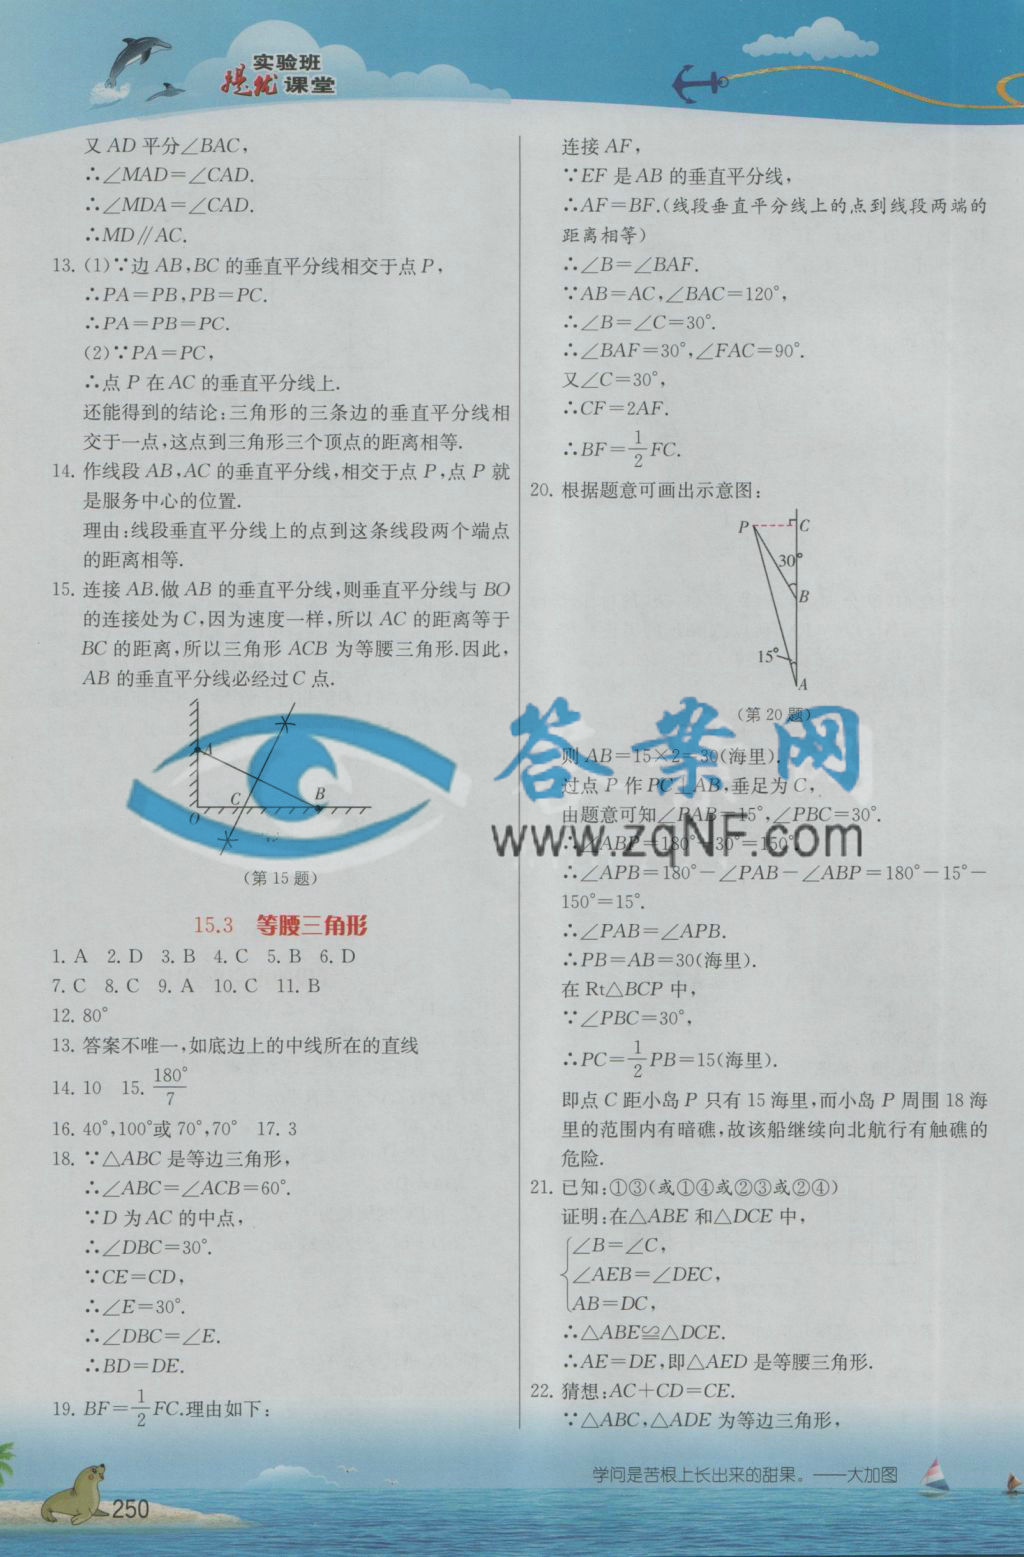 实验班
提优课堂
又 AD 平分∠BAC,
∴∠MAD=∠CAD.
∴∠MDA=∠CAD.
∴MD∥AC.
13. (1)∵边 AB,BC 的垂直平分线相交于点 P,
∴PA=PB,PB=PC.
∴PA=PB=PC.
(2)∵PA=PC,
∴点 P 在 AC 的垂直平分线上.
还能得到的结论:三角形的三条边的垂直平分线相
交于一点,这点到三角形三个顶点的距离相等.
14. 作线段 AB,AC 的垂直平分线,相交于点 P,点 P 就
是服务中心的位置.
理由:线段垂直平分线上的点到这条线段两个端点
的距离相等.
15. 连接 AB.做 AB 的垂直平分线,则垂直平分线与 BO
的连接处为 C,因为速度一样,所以 AC 的距离等于
BC 的距离,所以三角形 ACB 为等腰三角形.因此,
AB 的垂直平分线必经过 C 点.
A
C
B
O
(第 15 题)
15.3 等腰三角形
1. A 2. D 3. B 4. C 5. B 6. D
7. C 8. C 9. A 10. C 11. B
12. 80°
13. 答案不唯一,如底边上的中线所在的直线
14. 10 15. 180°/7
16. 40°,100°或 70°,70° 17. 3
18. ∵△ABC 是等边三角形,
∴∠ABC=∠ACB=60°.
∵D 为 AC 的中点,
∴∠DBC=30°.
∵CE=CD,
∴∠E=30°.
∴∠DBC=∠E.
∴BD=DE.
19. BF=1/2 FC.理由如下:
连接 AF,
∵EF 是 AB 的垂直平分线,
∴AF=BF.(线段垂直平分线上的点到线段两端的
距离相等)
∴∠B=∠BAF.
∵AB=AC,∠BAC=120°,
∴∠B=∠C=30°.
∴∠BAF=30°,∠FAC=90°.
又∠C=30°,
∴CF=2AF.
∴BF=1/2 FC.
20. 根据题意可画出示意图:
P
C
30°
B
15°
A
(第 20 题)
则 AB=15×2=30(海里).
过点 P 作 PC⊥AB,垂足为 C,
由题意可知∠PAB=15°,∠PBC=30°.
∴∠ABP=180°-30°=150°.
∴∠APB=180°-∠PAB-∠ABP=180°-15°-
150°=15°.
∴∠PAB=∠APB.
∴PB=AB=30(海里).
在 Rt△BCP 中,
∵∠PBC=30°,
∴PC=1/2 PB=15(海里).
即点 C 距小岛 P 只有 15 海里,而小岛 P 周围 18 海
里的范围内有暗礁,故该船继续向北航行有触礁的
危险.
21. 已知:①③(或①④或②③或②④)
证明:在△ABE 和△DCE 中,
∠B=∠C,
∠AEB=∠DEC,
AB=DC,
∴△ABE≌△DCE.
∴AE=DE,即△AED 是等腰三角形.
22. 猜想:AC+CD=CE.
∵△ABC,△ADE 为等边三角形,
答案网
www.zqNF.com
学问是苦根上长出来的甜果。——大加图
250